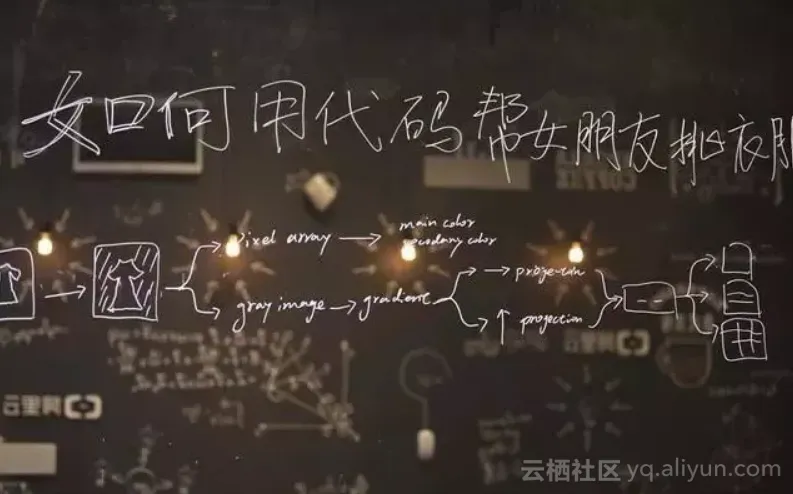 如何用代码帮女朋友挑衣服
pixel array
main color
secondary color
gray image
gradient
projection
projection
云栖社区 yq.aliyun.com